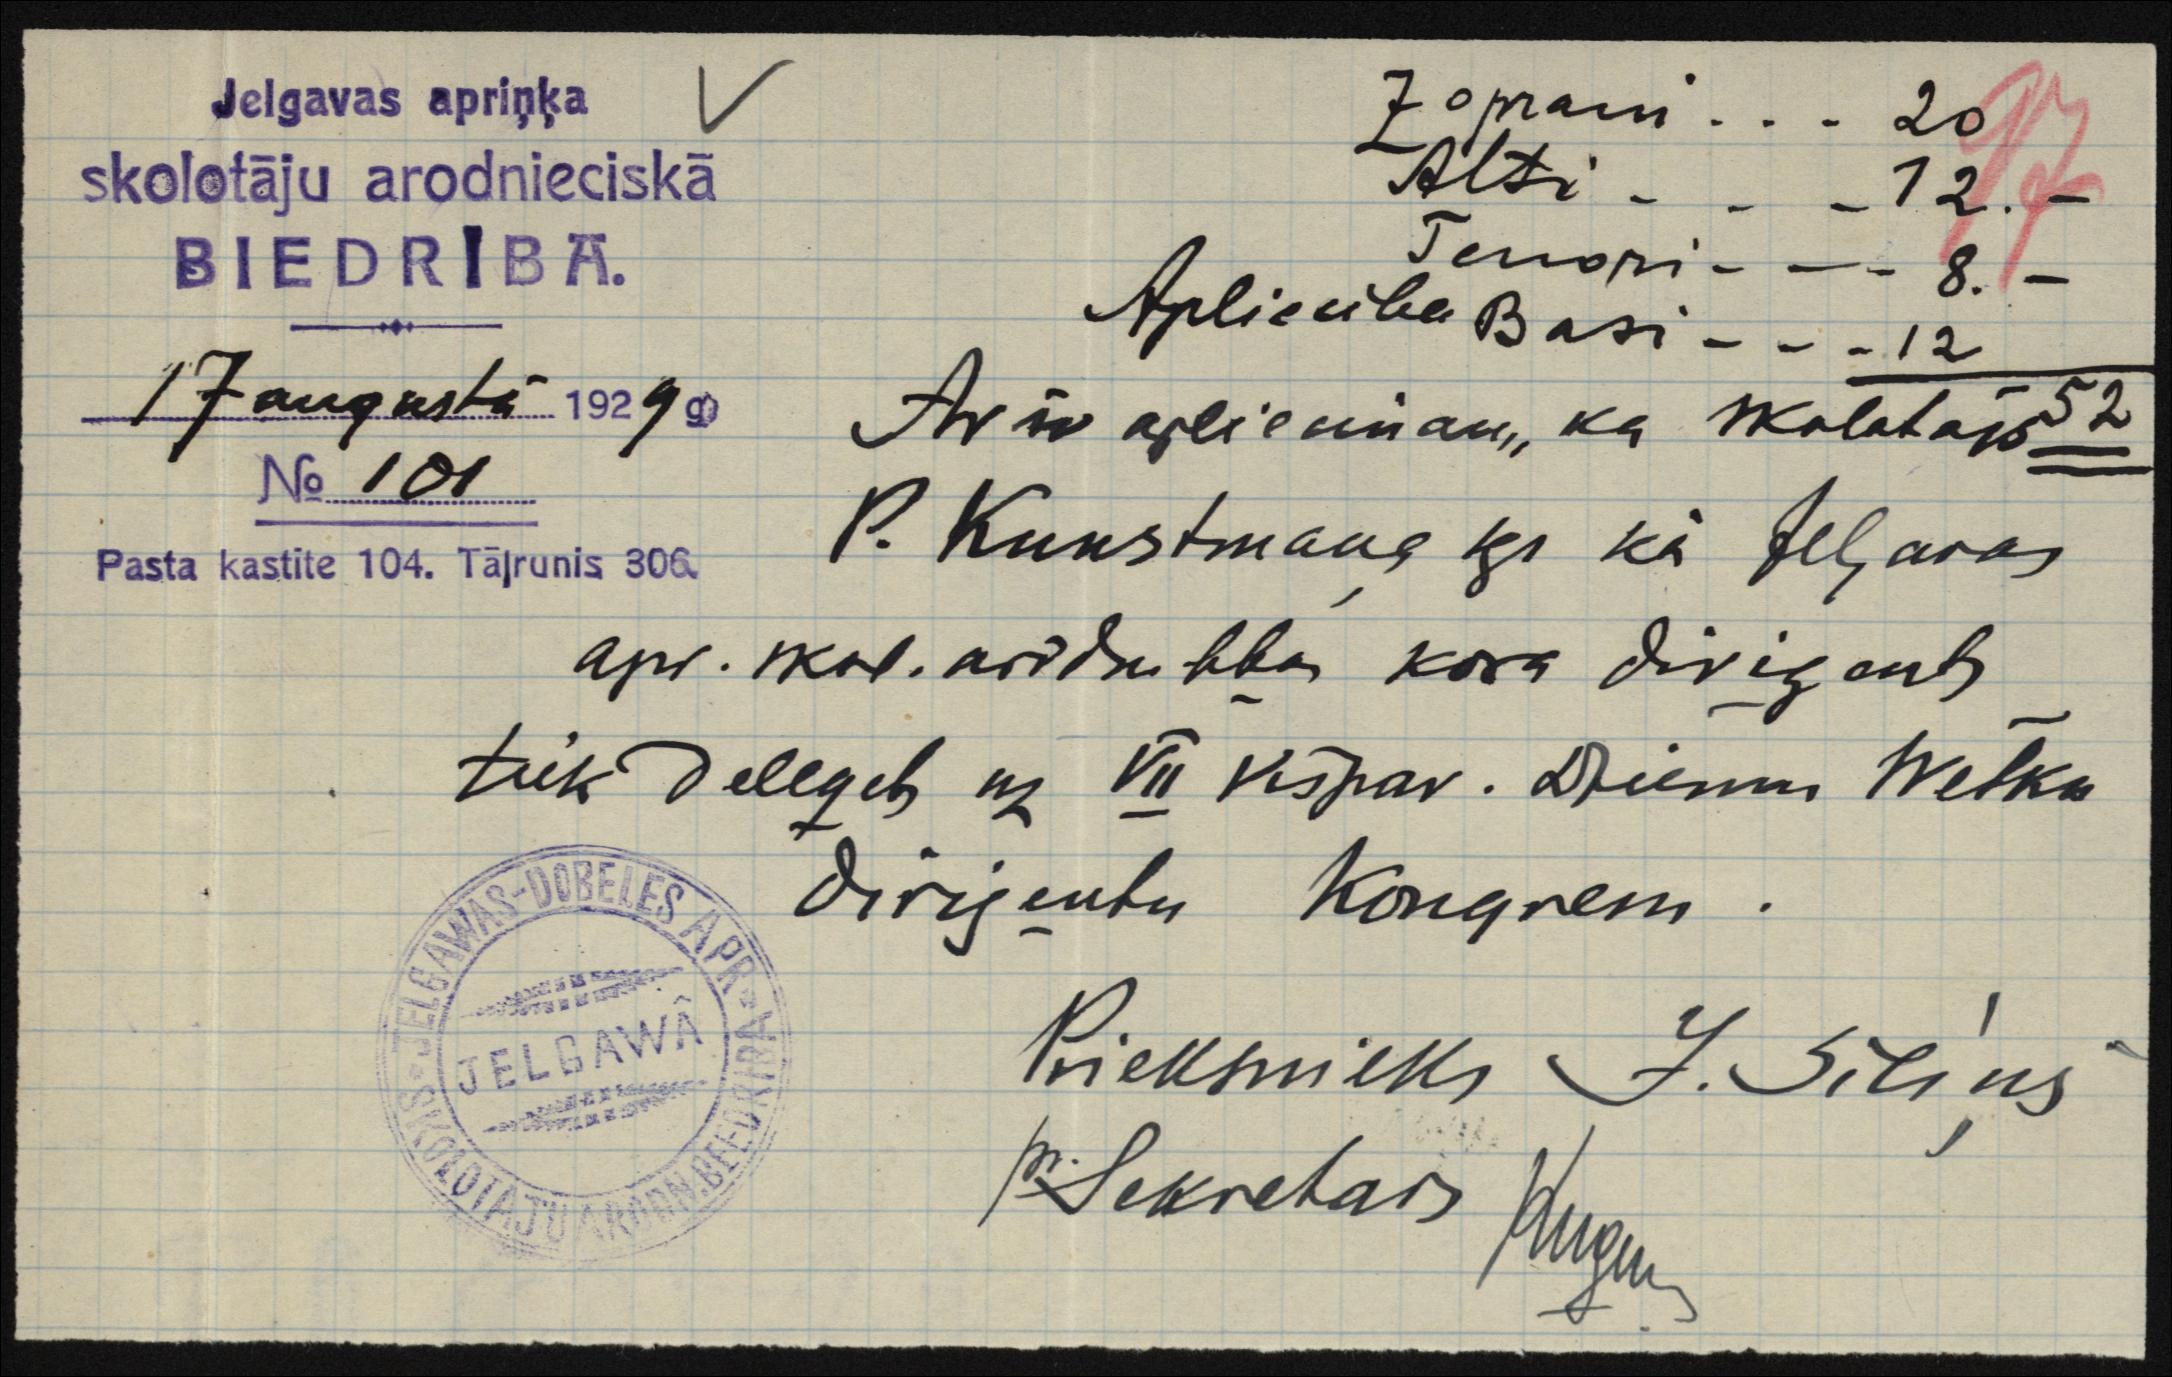 Jelgavas apriņķa
skolotāju arodnieciskā
BIEDRĪBA.
17 augustā 1929 g
№ 101
Pasta kastite 104. Tāļrunis 306.
Soprani . . . 20
Alti - - - 12. -
Tenori - - - 8. -
Basi - - - 12
52
97
Apliecība
Ar šo apliecinam, ka skolotājs
P. Kunstmaņa kgs kā Jelgavas
apr. skol. arodn. bbas kora diriģents
tiek deleģets uz VII vispar. Dziesmu Wetku
diriģentu Kongresu.
Prieksnieks J. Siliņš
p. Sekretars
JELGAWAS-DOBELES APR.
SKOLOTAJU ARODN. BEEDRIBA
JELGAWÂ